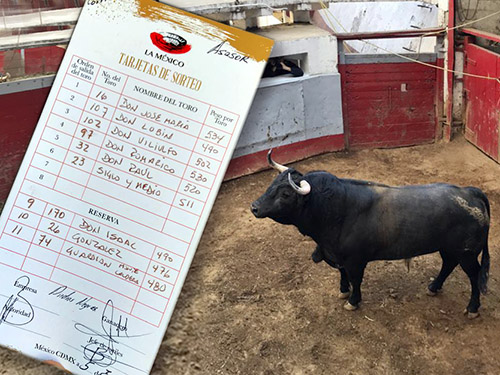 ASESOR
LA MÉXICO
TARJETAS DE SORTEO
Orden de salida del toro No. del Toro NOMBRE DEL TORO Peso por Toro
1 16 DON JOSE MARIA 534
2 107 DON LUBIN 490
3 102 DON VILIULFO 502
4 97 DON ROMARICO 530
5 32 DON RAUL 520
6 23 SIGLO Y MEDIO 511
7
8
RESERVA
9 170 DON ISAAC 490
10 26 GONZALEZ 476
11 74 GUARDIAN 480
Empresa
Ganadero
Autoridad
Juez de Plaza
México CDMX a 5